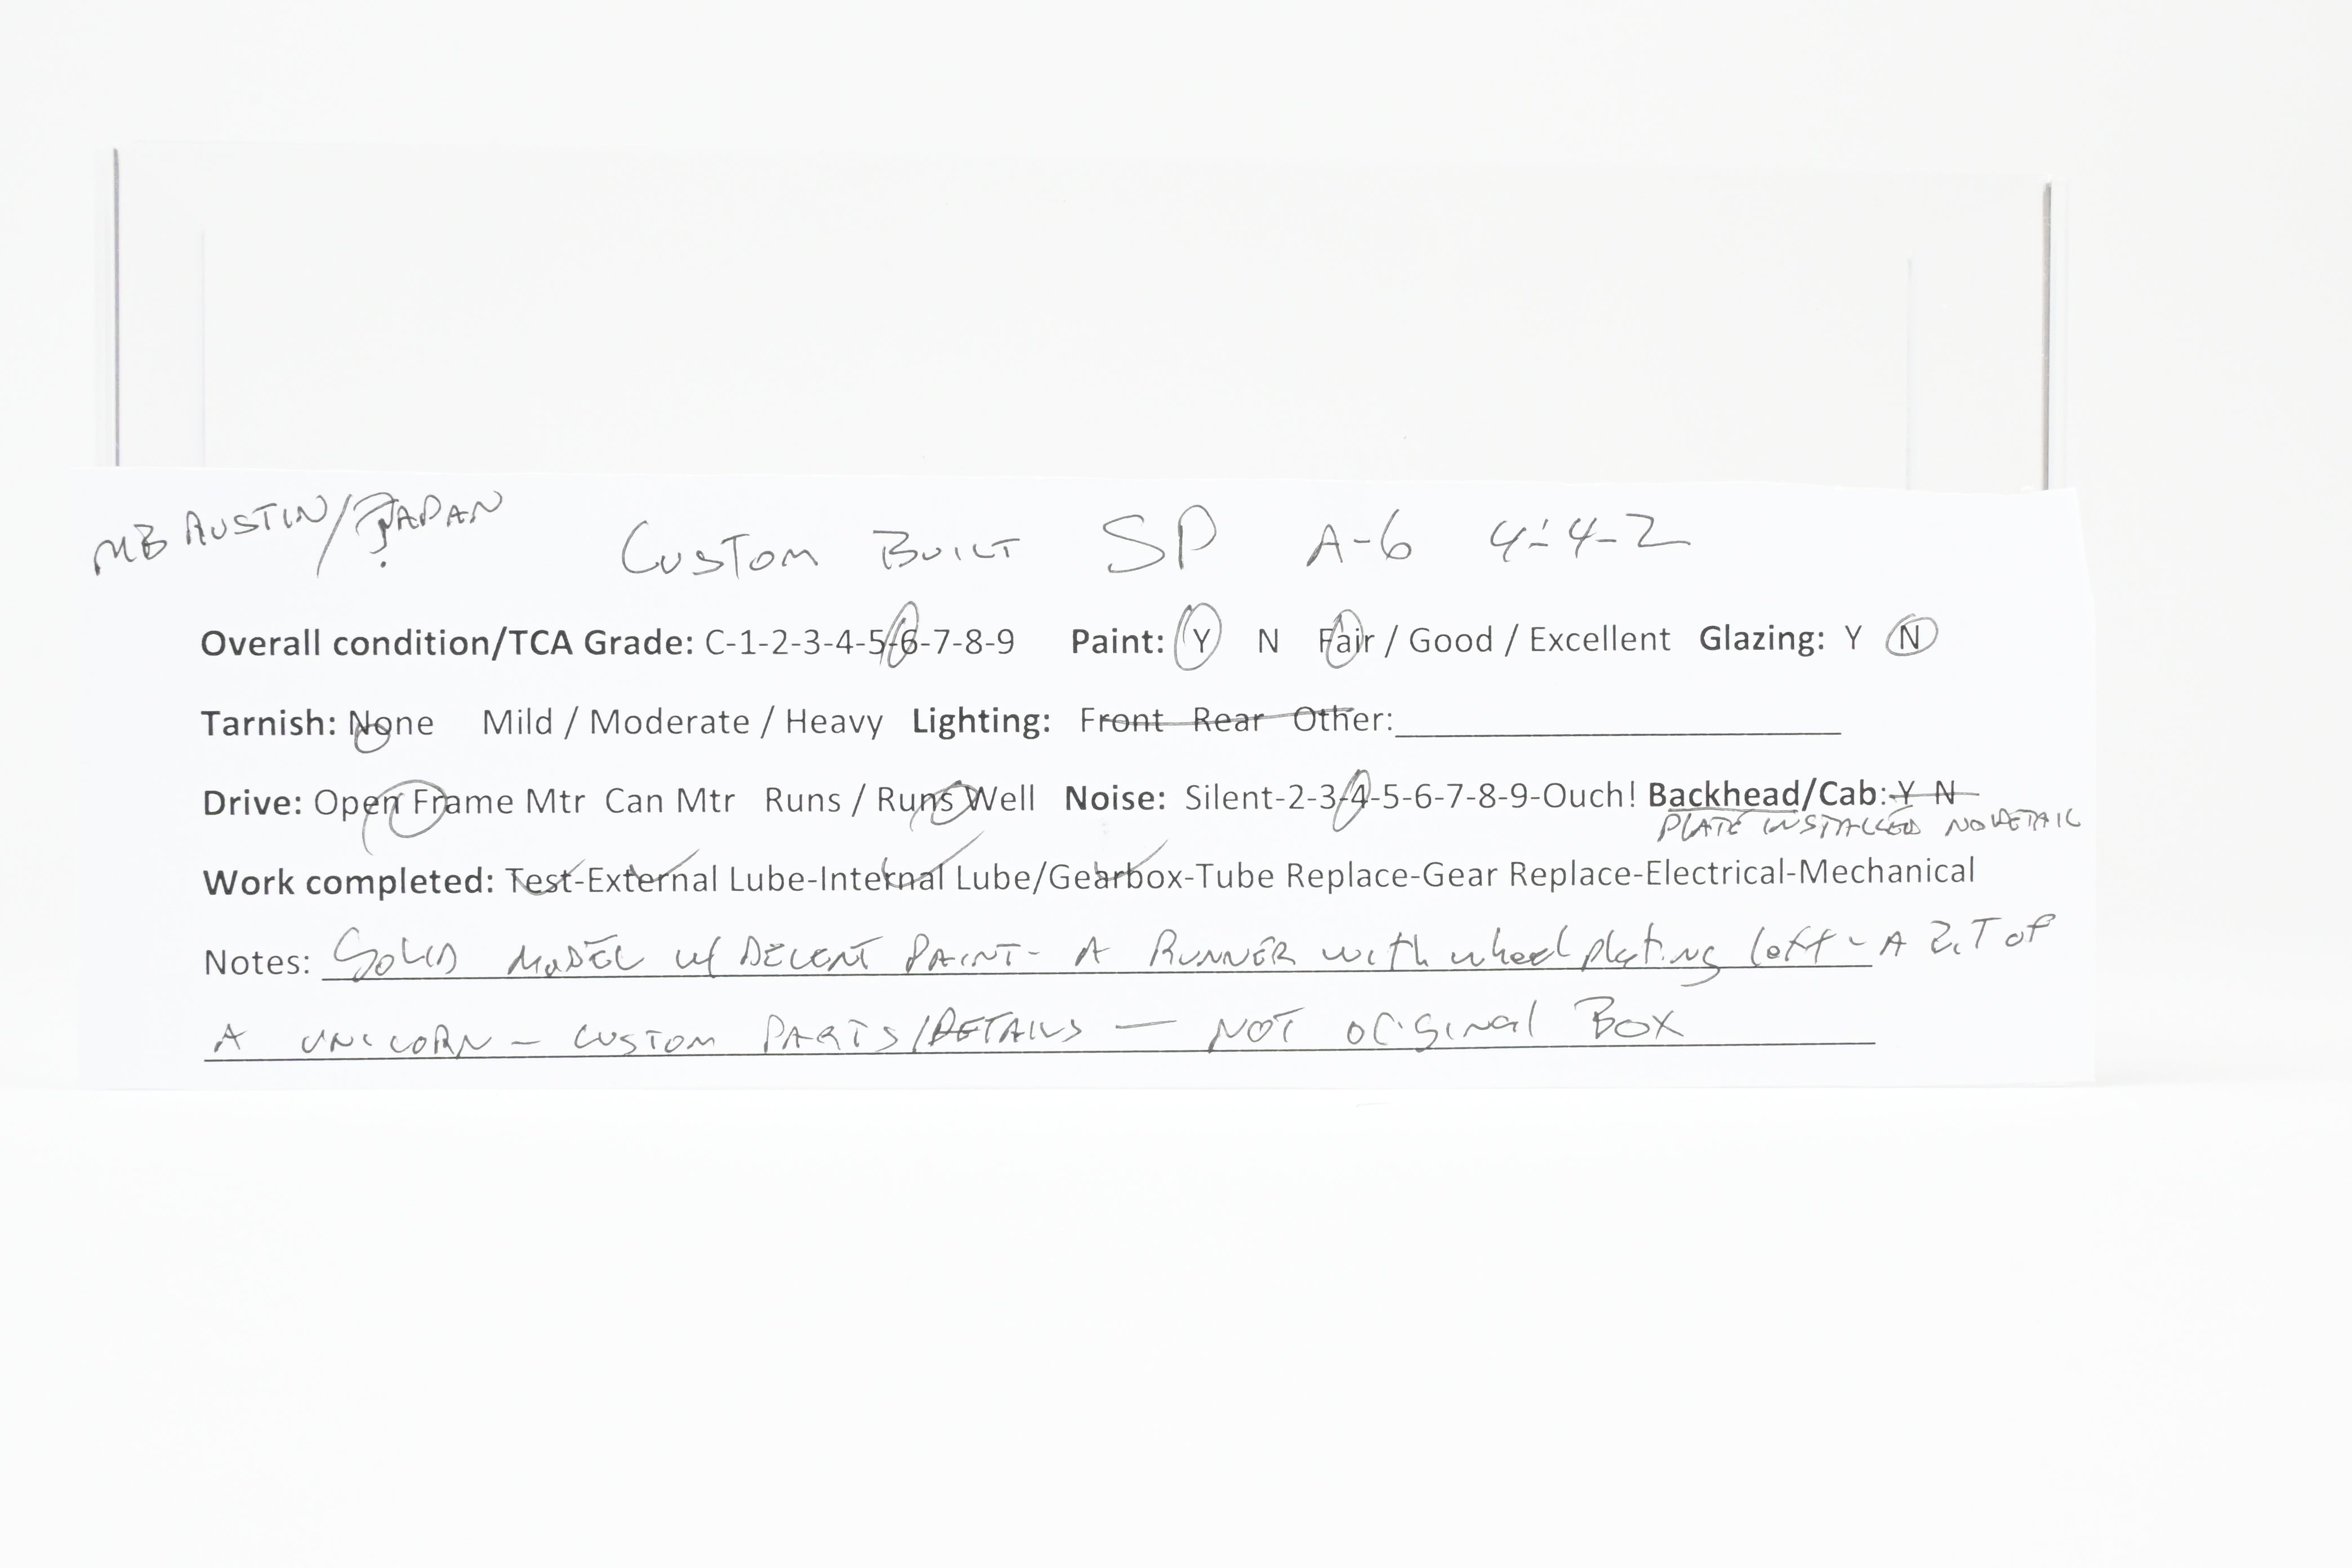 MB AUSTIN/JAPAN ?
Custom Built SP A-6 4-4-2
Overall condition/TCA Grade: C-1-2-3-4-5-6-7-8-9 Paint: Y N Fair / Good / Excellent Glazing: Y N
Tarnish: None Mild / Moderate / Heavy Lighting: Front Rear Other:
Drive: Open Frame Mtr Can Mtr Runs / Runs Well Noise: Silent-2-3-4-5-6-7-8-9-Ouch! Backhead/Cab: Y N
PLATE INSTALLED NO DETAIL
Work completed: Test-External Lube-Internal Lube/Gearbox-Tube Replace-Gear Replace-Electrical-Mechanical
Notes: SOLID MODEL w/ DECENT PAINT- A RUNNER with wheel plating left - A of
A UNICORN - CUSTOM PARTS/DETAILS — NOT ORIGINAL BOX